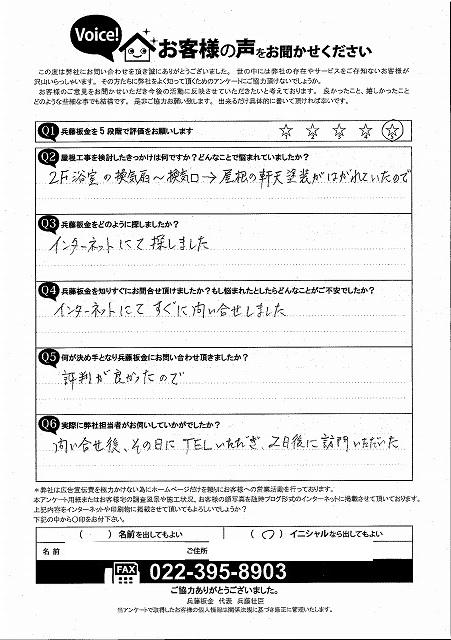 Voice!
お客様の声をお聞かせください
この度は弊社にお問い合わせを頂き誠にありがとうございました。世の中には弊社の存在やサービスをご存知ないお客様が
沢山いらっしゃいます。その方たちに弊社をよく知って頂くためのアンケートにご協力頂けないでしょうか。
お客様のご意見をお聞かせいただき今後の活動に反映させていただきたいと考えております。良かったこと、嬉しかったこと
どのような些細な事でも結構です。是非ご協力お願い致します。出来るだけ具体的に書いて頂ければ幸いです。
Q1 兵藤板金を5段階で評価をお願いします
☆1 ☆2 ☆3 ☆4 ☆5
Q2 屋根工事を検討したきっかけは何ですか？どんなことで悩まれていましたか？
2F浴室の換気扇〜換気口→屋根の軒天塗装がはがれていたので
Q3 兵藤板金をどのように探しましたか？
インターネットにて探しました
Q4 兵藤板金を知りすぐにお問合せ頂けましたか？もし悩まれたとしたらどんなことがご不安でしたか？
インターネットにてすぐに問い合せしました
Q5 何が決め手となり兵藤板金にお問い合わせ頂きましたか？
評判が良かったので
Q6 実際に弊社担当者がお伺いしていかがでしたか？
問い合せ後、その日にTELいただき、2日後に訪問いただいた
＊弊社は広告宣伝費を極力かけない為にホームページだけを頼りにお客様への営業活動を行っております。
本アンケート用紙またはお客様宅の調査風景や施工状況、お客様の顔写真を随時ブログ形式のインターネットに掲載させて頂いております。
上記内容をインターネットや印刷物に掲載させて頂いてもよろしいでしょうか？
下記の中から〇印をお付下さい。
（　　）名前を出してもよい　（ 〇 ）イニシャルなら出してもよい
名前　ご住所
FAX 022-395-8903
ご協力ありがとうございました。
兵藤板金 代表 兵藤社臣
当アンケートで取得したお客様の個人情報は関係法規に基づき厳正に管理いたします。